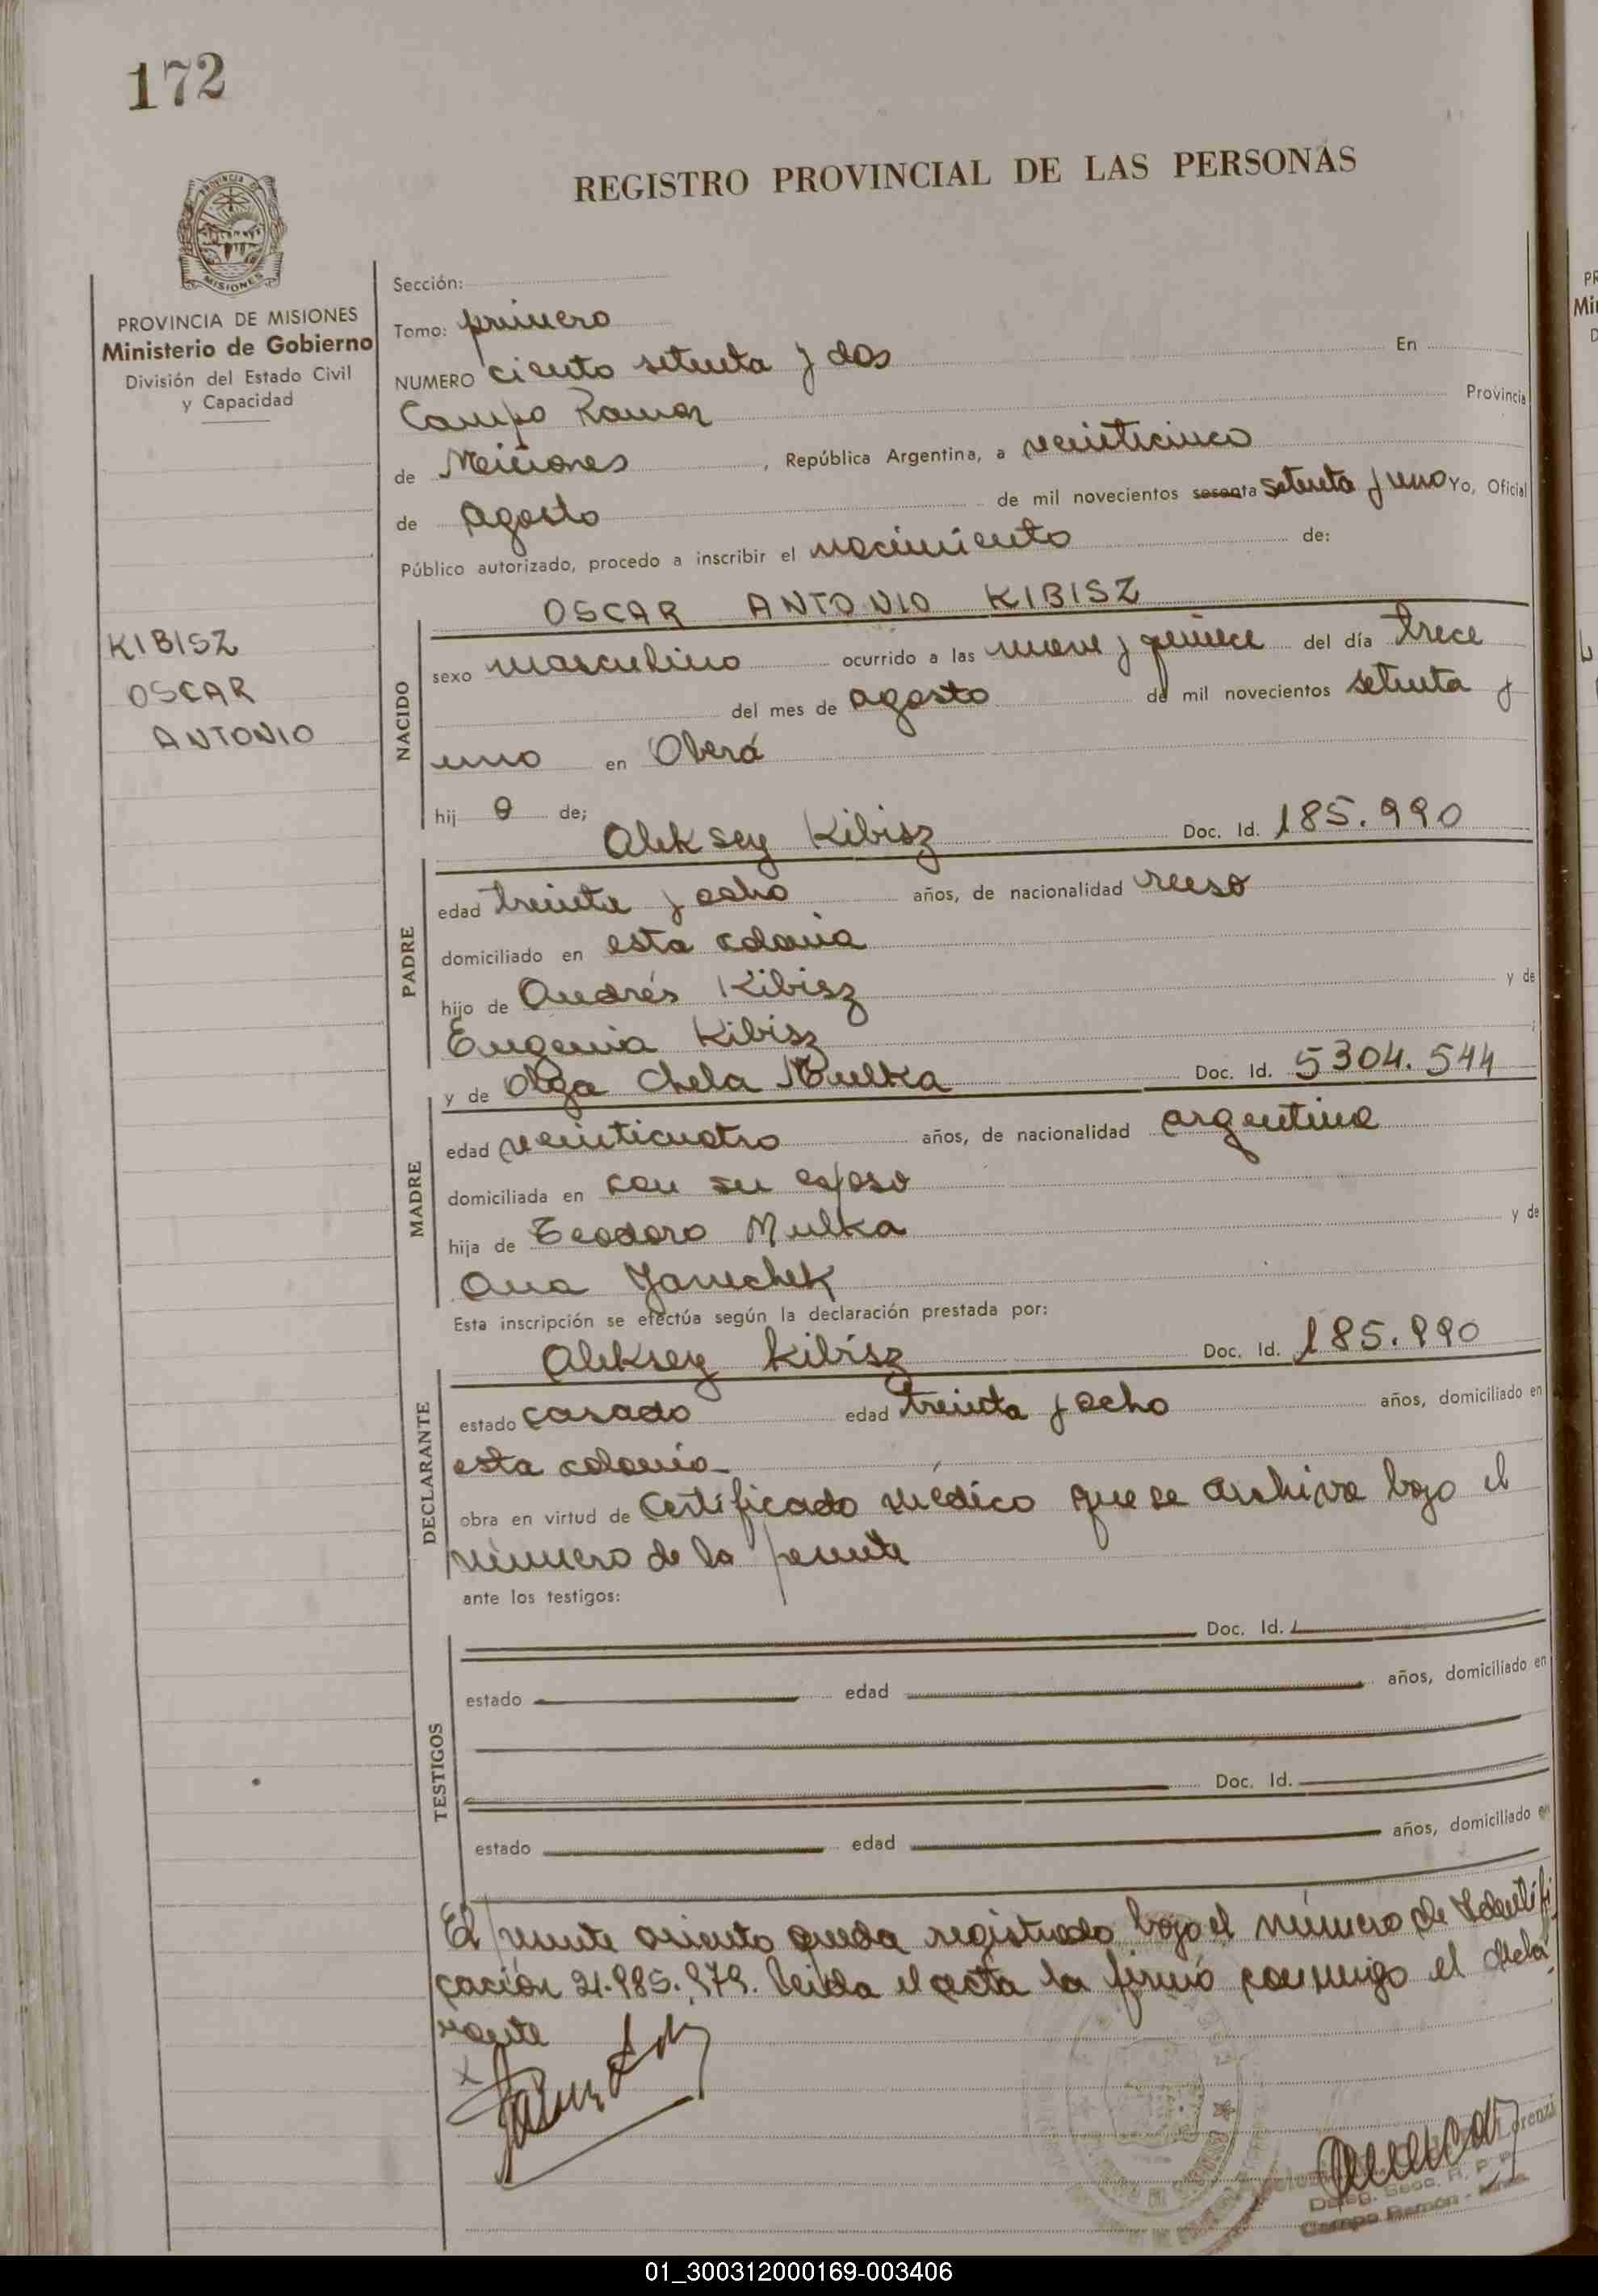 172
REGISTRO PROVINCIAL DE LAS PERSONAS
PROVINCIA DE
MISIONES
PROVINCIA DE MISIONES
Ministerio de Gobierno
División del Estado Civil
y Capacidad
KIBISZ
OSCAR
ANTONIO
Sección:
Tomo: primero
NUMERO ciento setenta y dos En
Campo Ramon Provincia
de Misiones, República Argentina, a veinticinco
de agosto de mil novecientos sesenta setenta y uno Yo, Oficial
Público autorizado, procedo a inscribir el nacimiento de:
OSCAR ANTONIO KIBISZ
NACIDO
sexo masculino ocurrido a las nueve y quince del día trece
del mes de agosto de mil novecientos setenta y
uno en Oberá
hij o de;
Aleksey Kibisz Doc. Id. 185.990
PADRE
edad treinta y ocho años, de nacionalidad ruso
domiciliado en esta colonia
hijo de Andrés Kibisz y de
Eugenia Kibisz
y de Olga Chela Mulka Doc. Id. 5304.544
MADRE
edad veinticuatro años, de nacionalidad argentina
domiciliada en con su esposo
hija de Teodoro Mulka y de
Ana
Esta inscripción se efectúa según la declaración prestada por:
Aleksey Kibisz Doc. Id. 185.990
DECLARANTE
estado casado edad treinta y ocho años, domiciliado en
esta colonia
obra en virtud de Certificado médico que se archiva bajo el
número de la presente
ante los testigos:
TESTIGOS
Doc. Id.
estado edad años, domiciliado en
Doc. Id.
estado edad años, domiciliado en
El presente asiento queda registrado bajo el número de Identifi
cación 21.985.979. Leida el acta la firmó conmigo el decla
rante
X
Deleg. Secc. R. P. P.
Campo Ramón - Mnes.
01_300312000169-003406